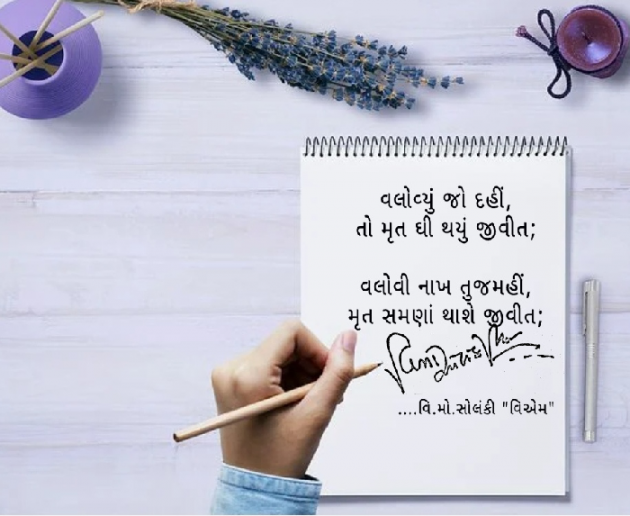 વલોવ્યું જો દહીં,
તો મૃત ઘી થયું જીવીત;
વલોવી નાખ તુજમહીં,
મૃત સમણાં થાશે જીવીત;
....વિ.મો.સોલંકી "વિએમ"